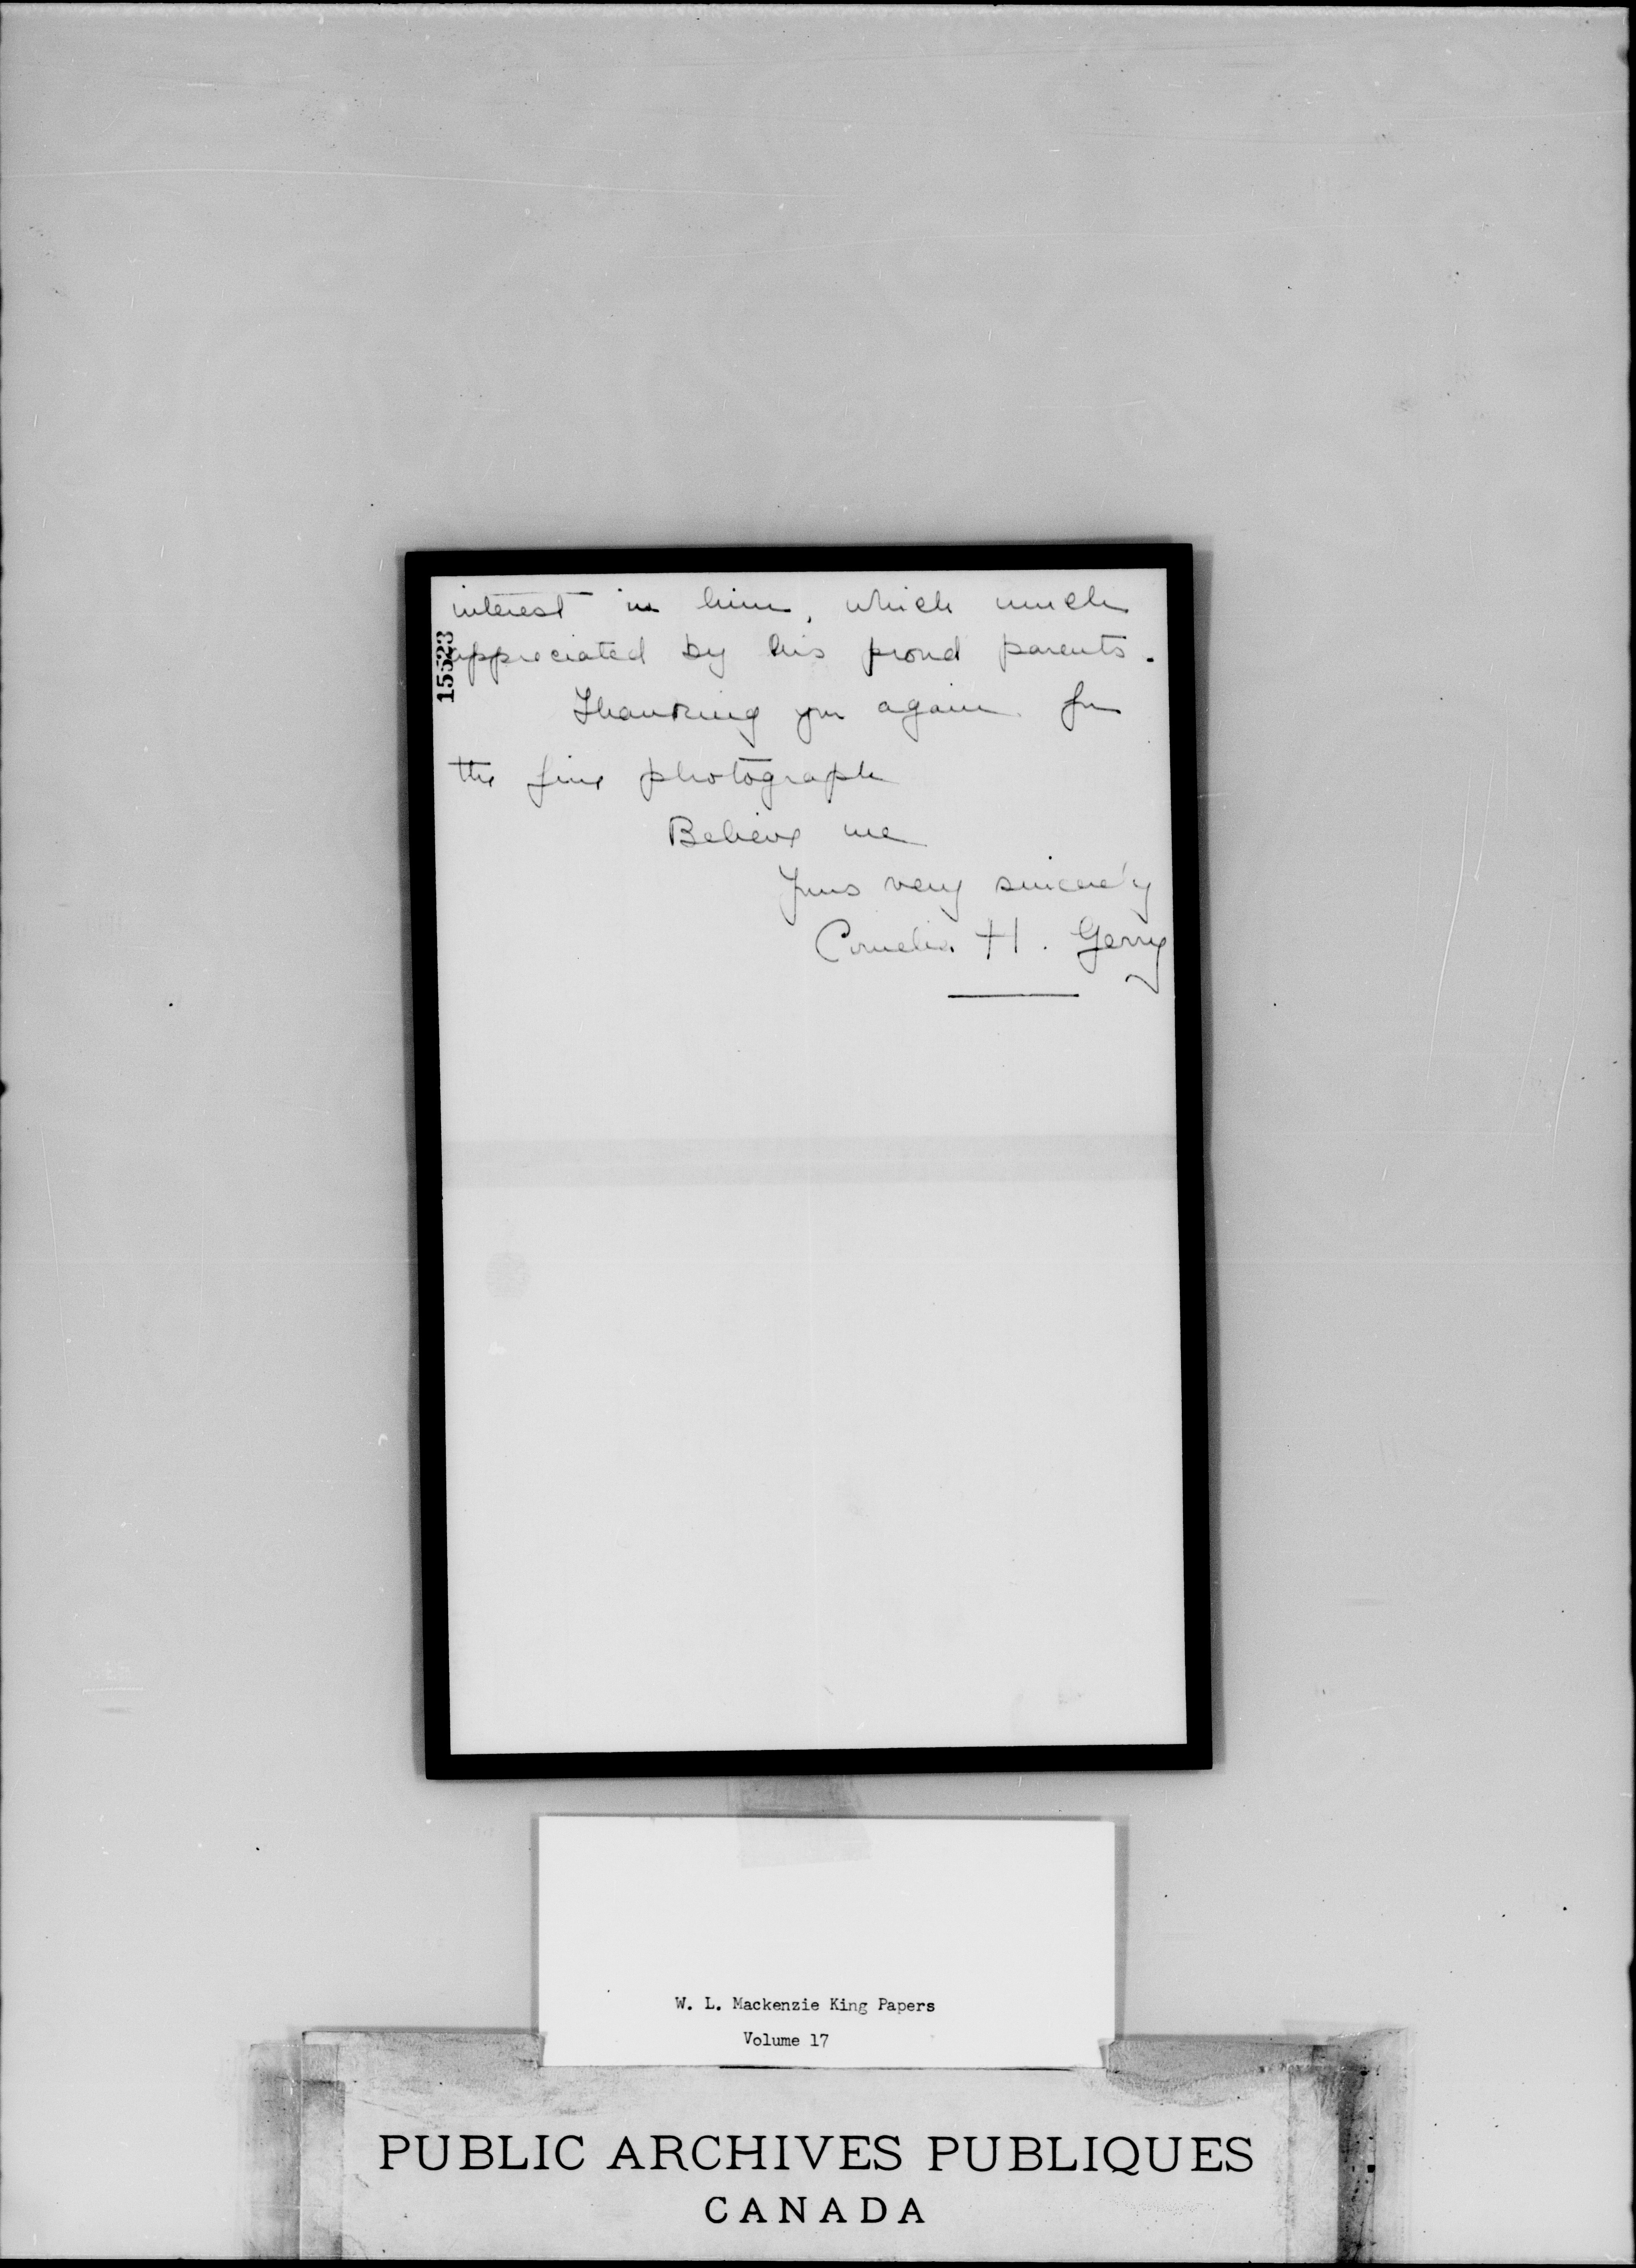 interest in him, which much
15523
appreciated by his proud parents.
Thanking you again for
the fine photograph
Believe me
Yours very sincerely
Cornelia H. Gerry
W. L. Mackenzie King Papers
Volume 17
PUBLIC ARCHIVES PUBLIQUES
CANADA